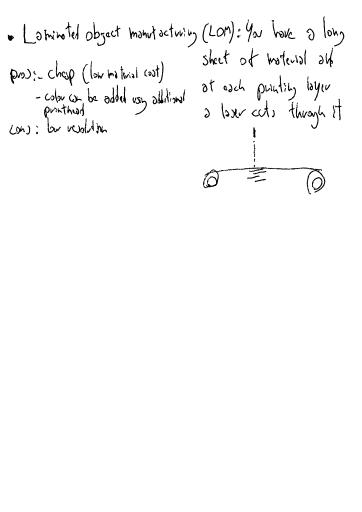 • Laminated object manufacturing (LOM): You have a long
sheet of material and
at each printing layer
a laser cuts through it
pros: - cheap (low material cost)
- color can be added using additional
printhead
cons: low resolution